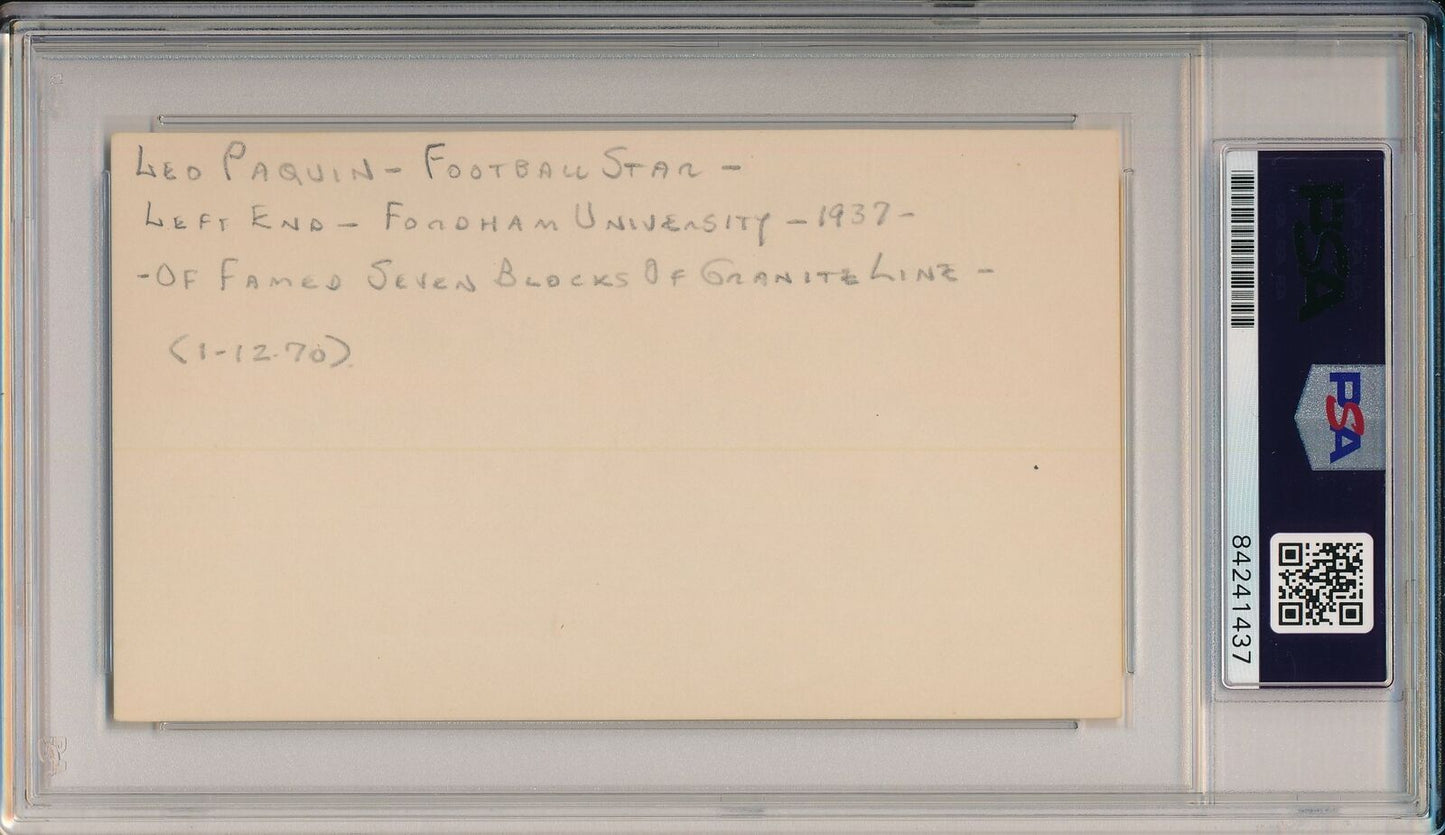 LEO PAQUIN - FOOTBALL STAR -
LEFT END - FORDHAM UNIVERSITY - 1937 -
- OF FAMED SEVEN BLOCKS OF GRANITE LINE -
(1-12-70)
PSA
PSA
84241437